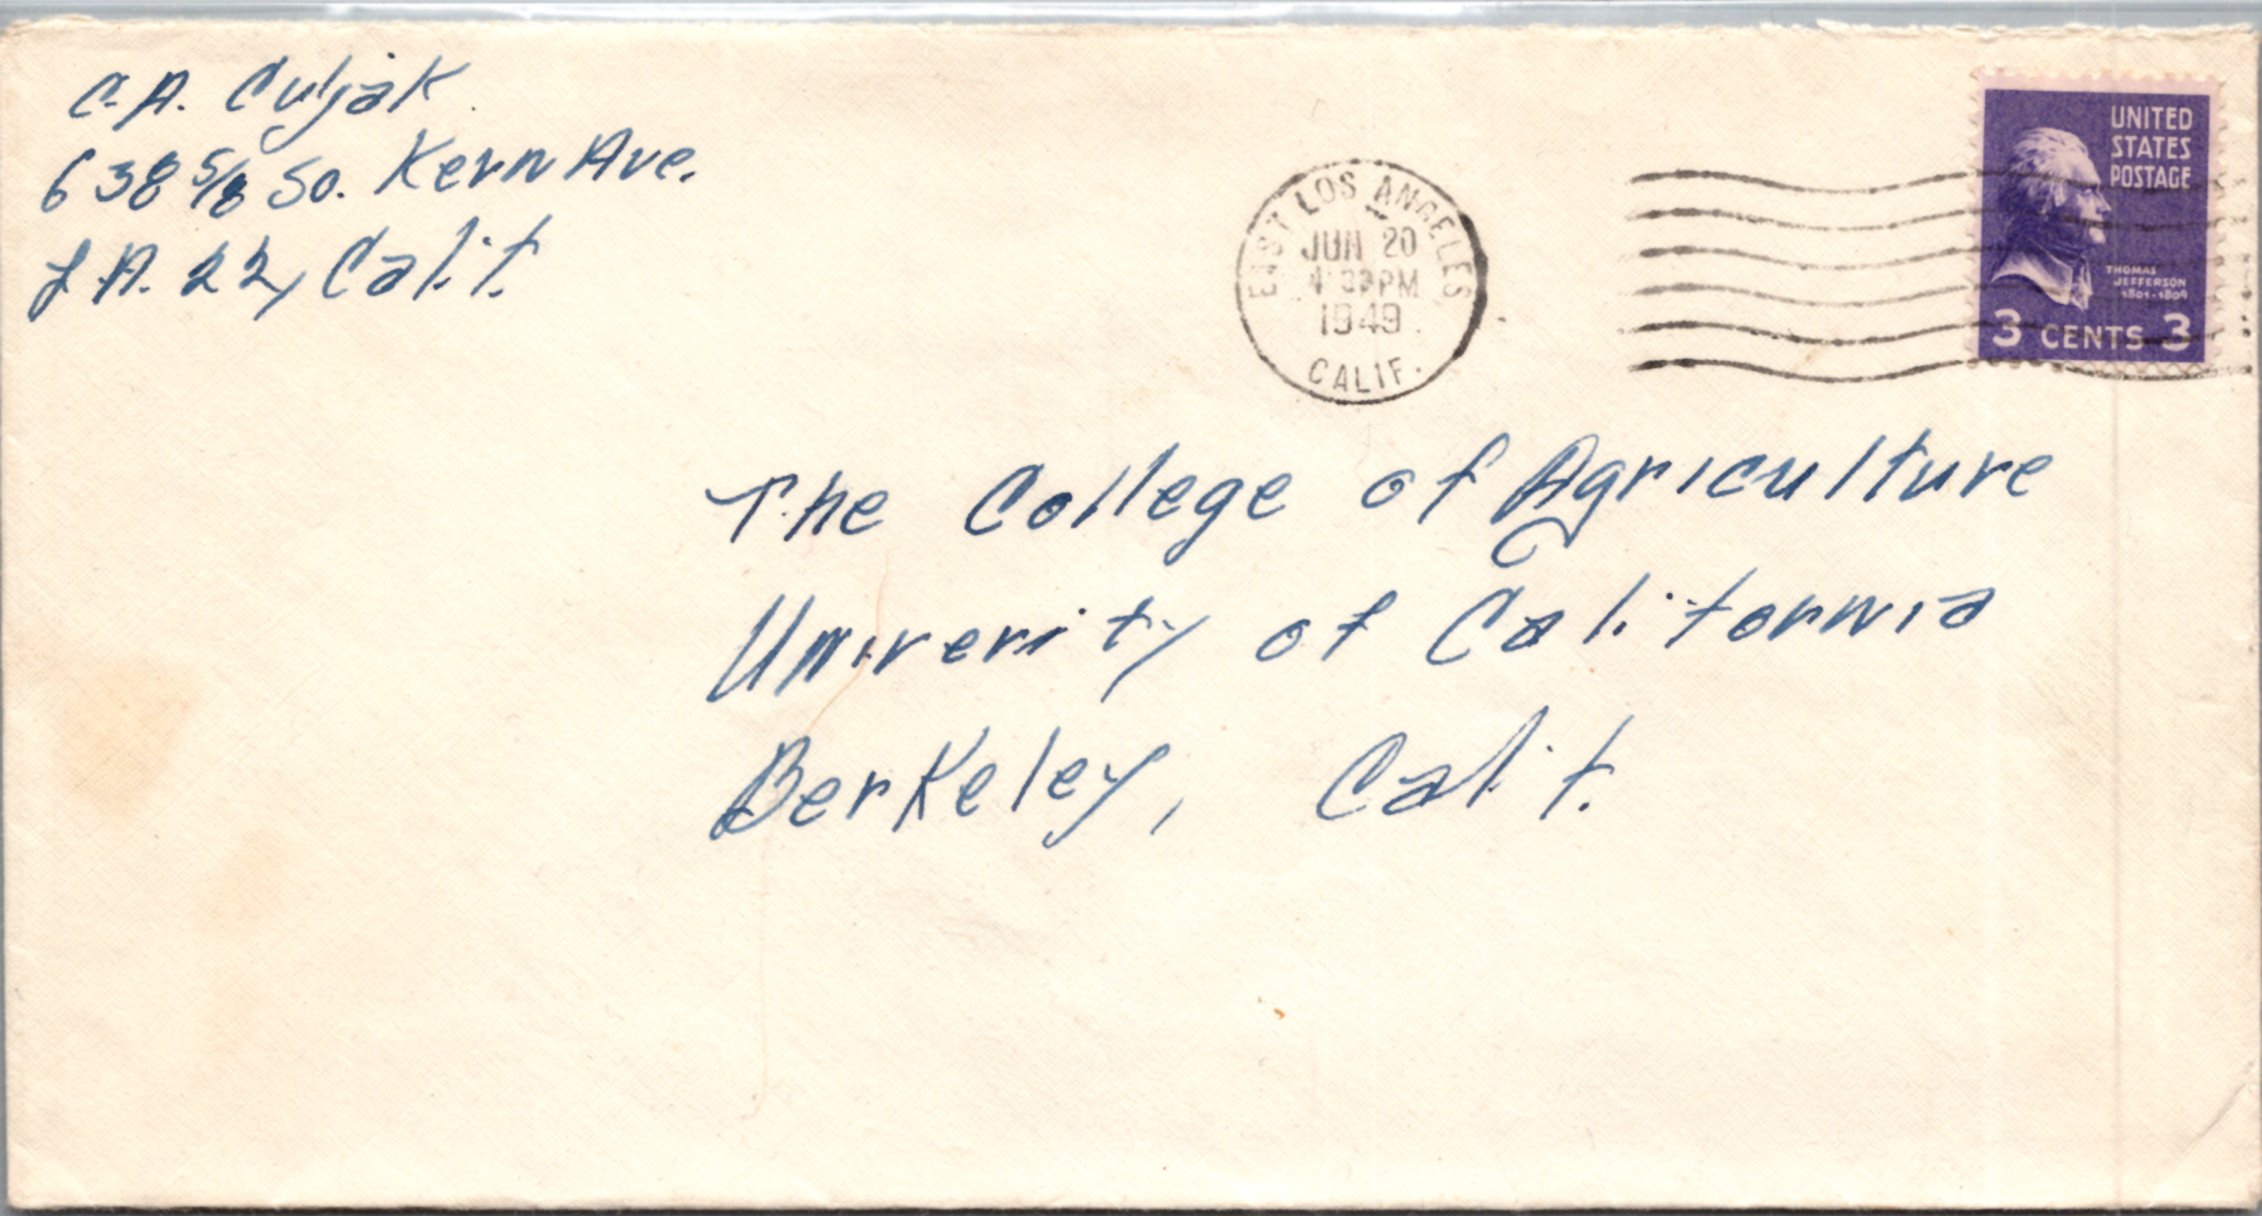 C.A. Culjak
638 5/8 So. Kern Ave.
L.A. 22, Calif.
EAST LOS ANGELES
JUN 20
PM
1949
CALIF.
UNITED
STATES
POSTAGE
THOMAS
JEFFERSON
1801-1809
3 CENTS 3
The College of Agriculture
Univerity of California
Berkeley, Calif.